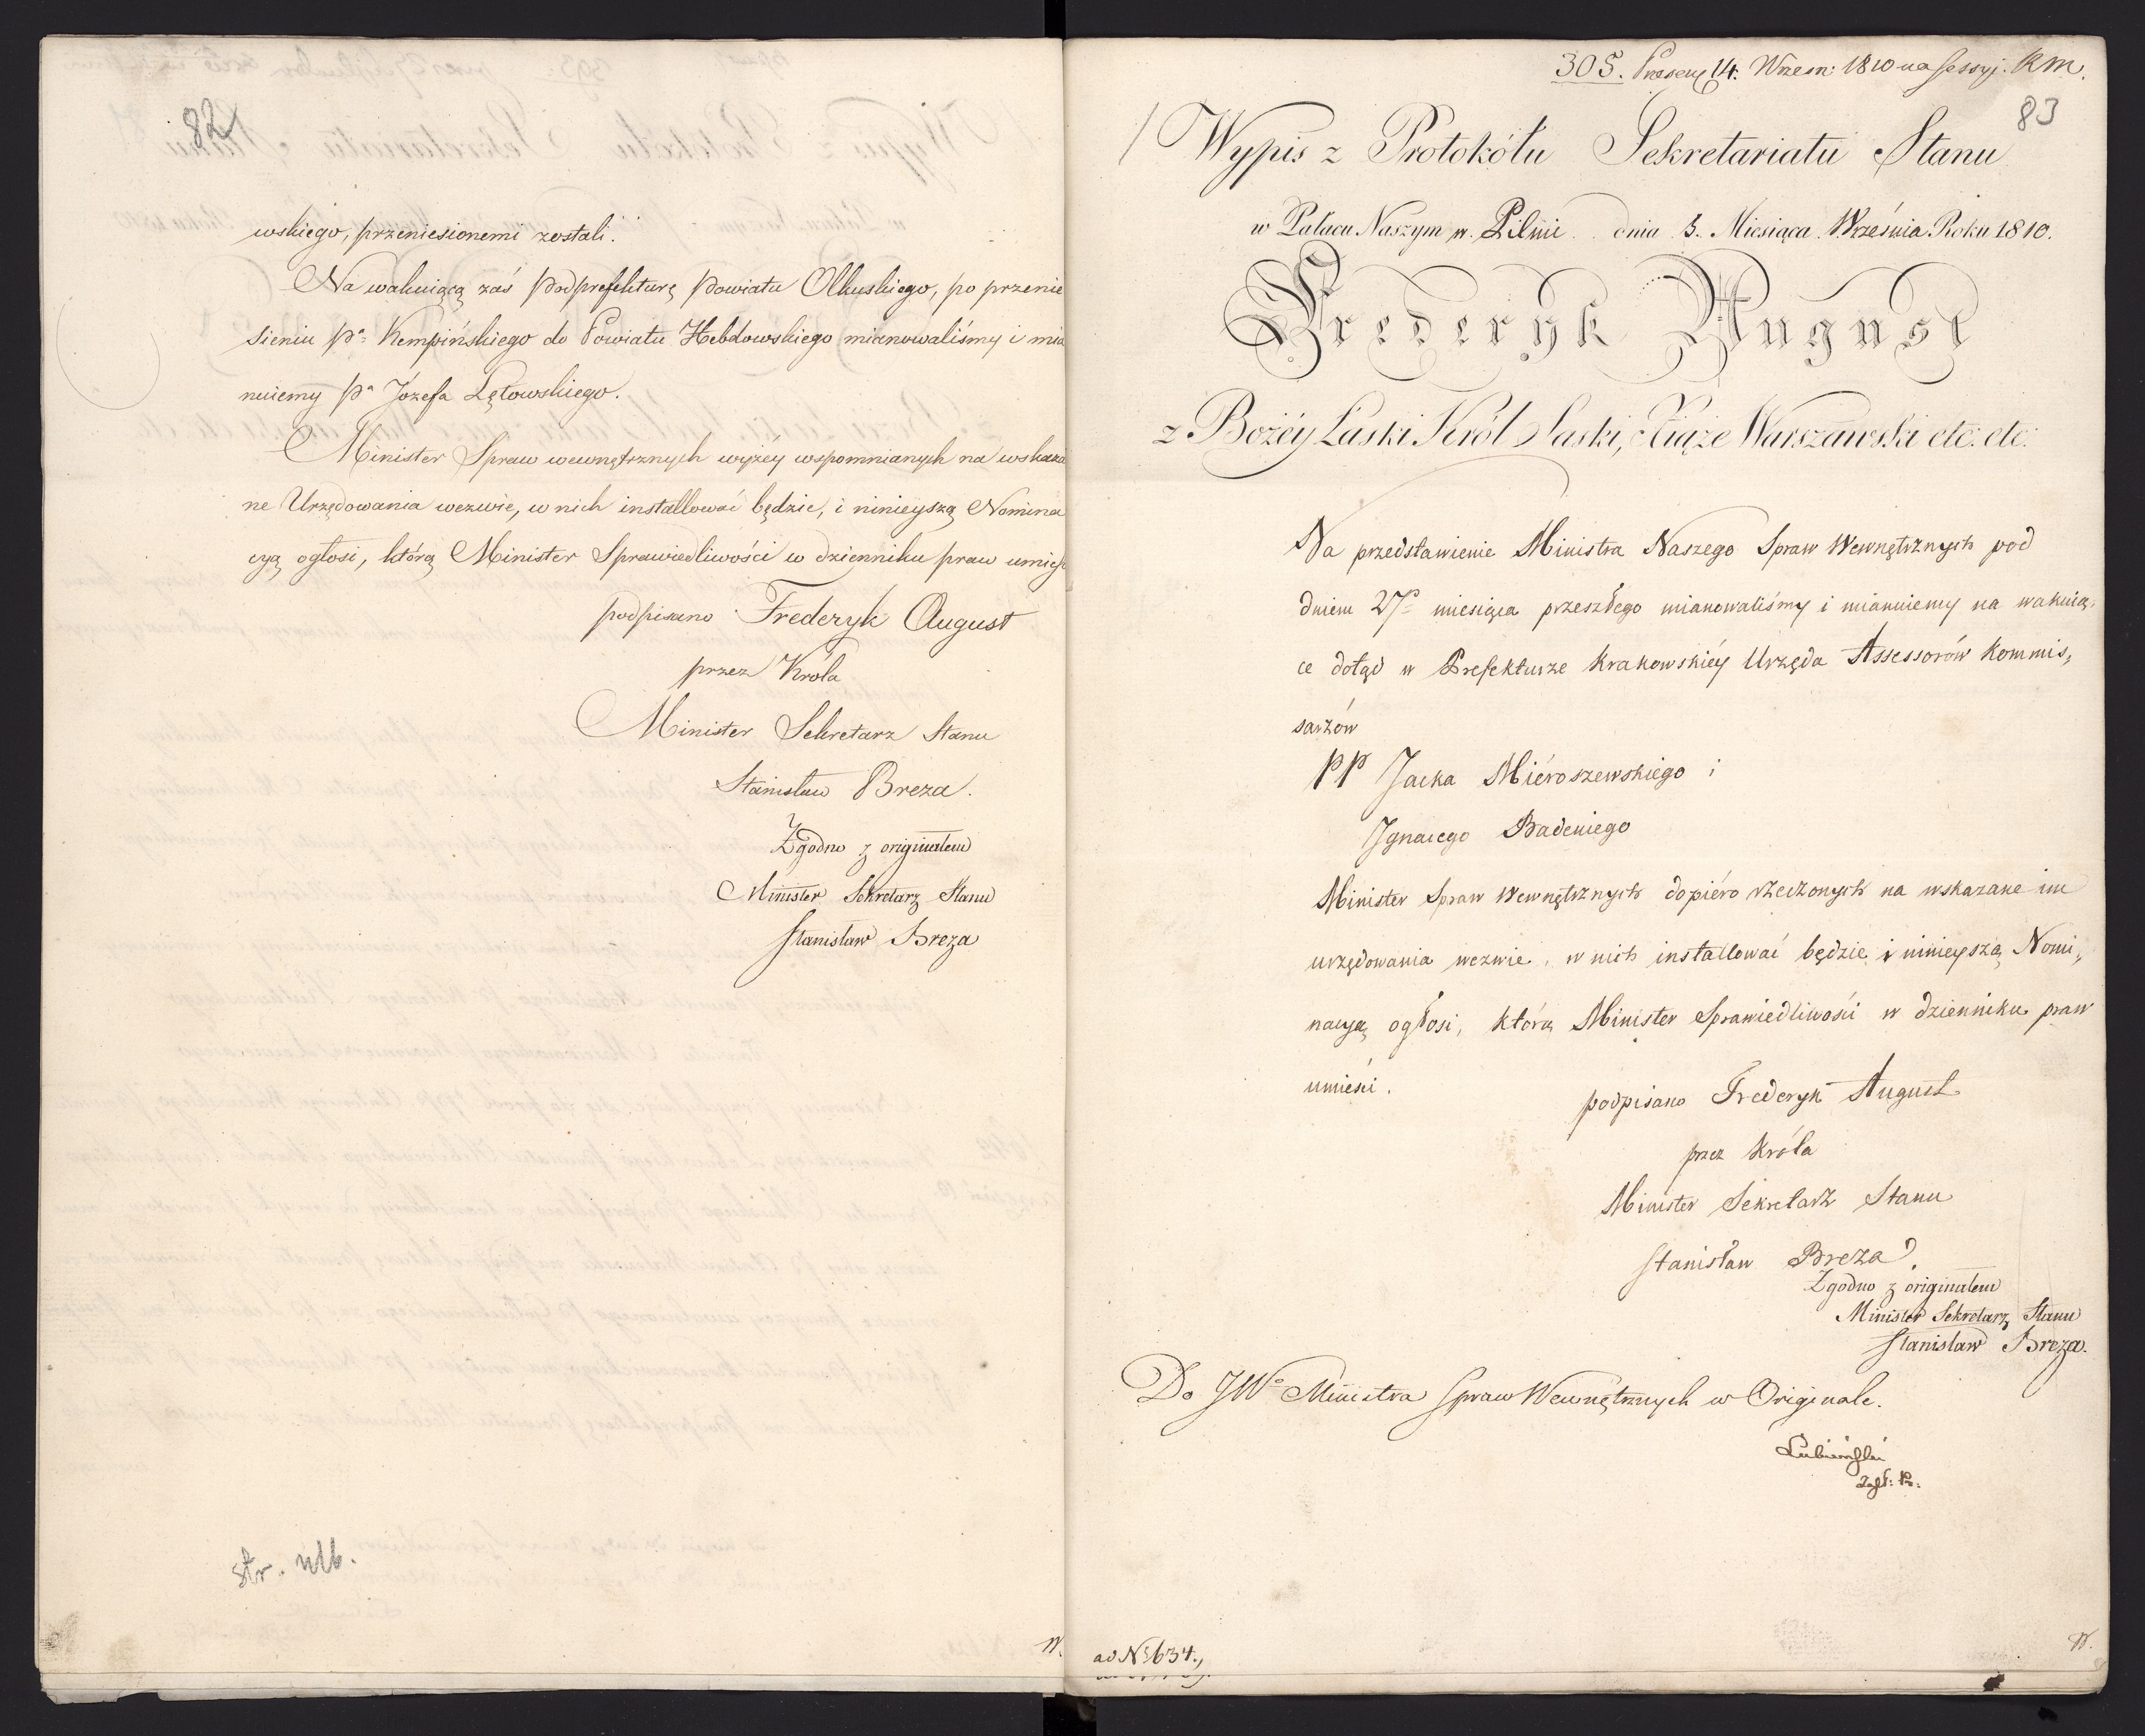 82
wskiego, przeniesionemi zostali.
Na wakuiącą zaś Podprefekturę Powiatu Olkuskiego, po przenie
sieniu Pª Kempińskiego do Powiatu Hebdowskiego mianowaliśmy i mia
nuiemy Pª Józefa Lętowskiego.
Minister Spraw wewnętrznych wyżéy wspomnianych na wskaza
ne Urzędowania wezwie, w nich installować będzie, i ninieyszą Nomina
cyą ogłosi, którą Minister Sprawiedliwości w dzienniku praw umieś
podpisano Frederyk August
przez Króla
Minister Sekretarz Stanu
Stanisław Breza.
Zgodno z originałem
Minister Sekretarz Stanu
Stanisław Breza
str. nlb.
W.
305. Praesen: 14. Wrześn: 1810 na sessyi. RM.
83
Wypis z Protokółu Sekretariatu Stanu
w Pałacu Naszym w Pilnic dnia 3. Miesiąca Września Roku 1810.
Frederyk August
z Bożéy Łaski Król Saski, Xiąże Warszawski etc: etc:
Na przedstawienie Ministra Naszego Spraw Wewnętrznych pod
dniem 27º miesiąca przeszłego mianowaliśmy i mianuiemy na wakuią,
ce dotąd w Prefekturze Krakowskiéy Urzęda Assessorów Kommis,
sarzów
PP Jacka Miéroszewskiego i
Ignacego Badeniego
Minister Spraw Wewnętrznych dopiéro rzeczonych na wskazane im
urzędowania wezwie, w nich installować będzie i ninieyszą Nomi,
nacyą ogłosi, którą Minister Sprawiedliwości w dzienniku praw
umieści.
podpisano Frederyk August
przez Króla
Minister Sekretarz Stanu
Stanisław Breza.
Zgodno z originałem
Minister Sekretarz Stanu
Stanisław Breza.
Do JWº Ministra Spraw Wewnętrznych w Originale.
Lubieński
ad Nº 634.,
W.